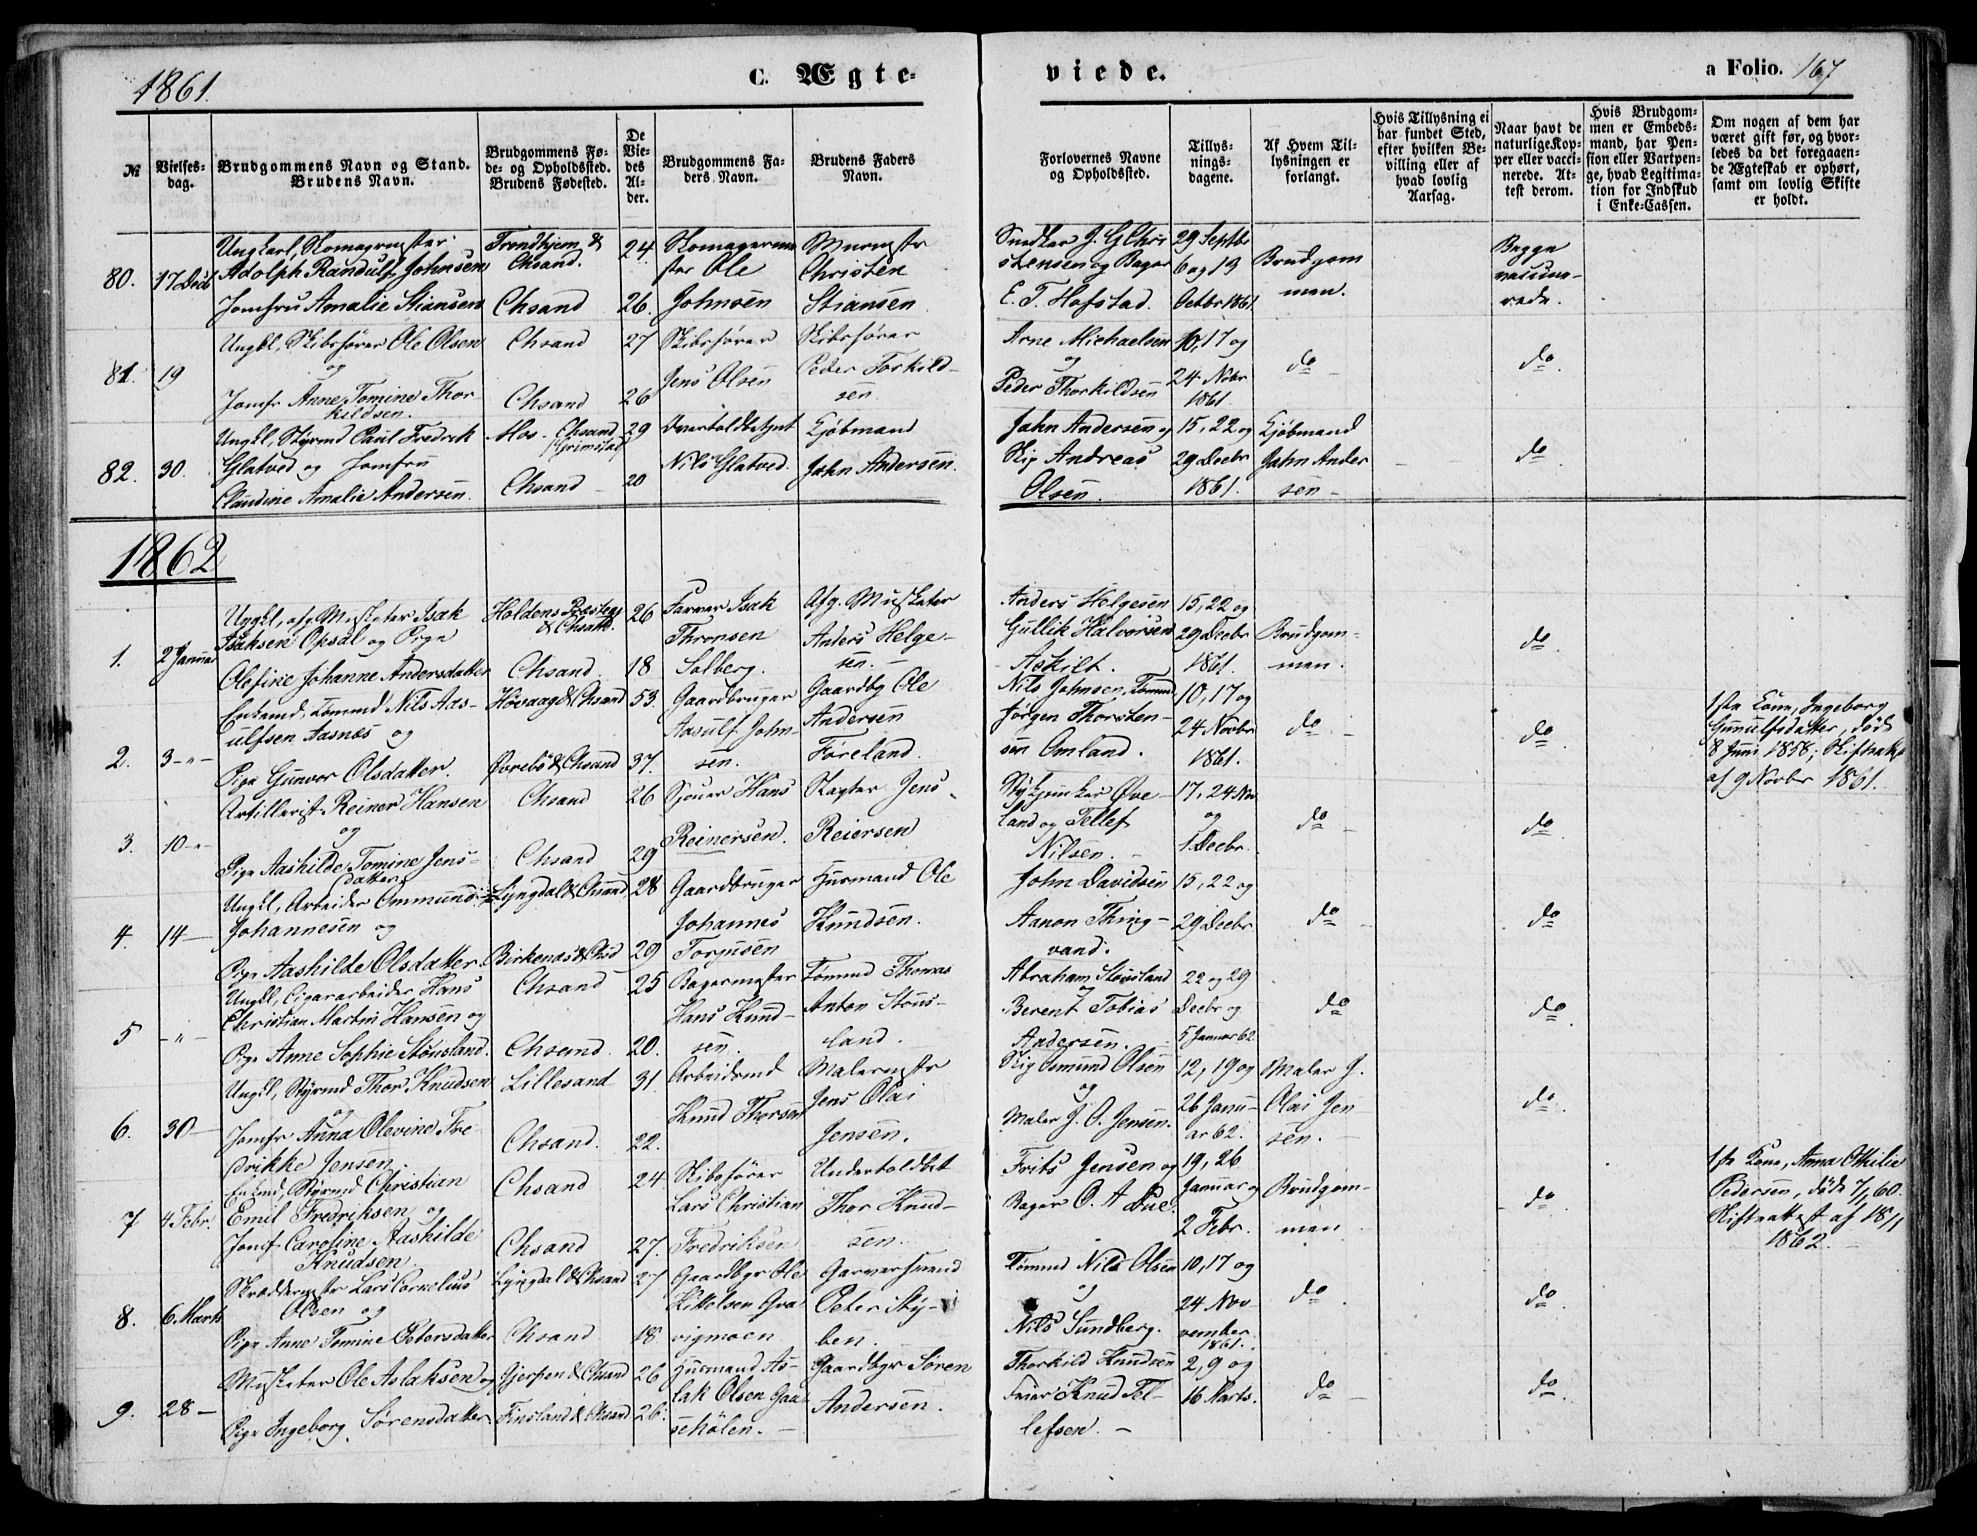 1861.
C. Ægte-
viede.
a Folio. 167
№
Vielses-
dag.
Brudgommens Navn og Stand.
Brudens Navn.
Brudgommens Fø-
de- og Opholdssted.
Brudens Fødested.
De
Vie-
des
Al-
der.
Brudgommens Fa-
ders Navn.
Brudens Faders
Navn.
Forlovernes Navne
og Opholdssted.
Tillys-
nings-
dagene.
Af Hvem Til-
lysningen er
forlangt.
Hvis Tillysning ei
har fundet Sted,
efter hvilken Be-
villing eller af
hvad lovlig
Aarsag.
Naar havt de
naturlige Kop-
per eller vacci-
nerede. At-
test derom.
Hvis Brudgom-
men er Embeds-
mand, har Pen-
sion eller Vartpen-
ge, hvad Legitima-
tion for Indskud
i Enke-Cassen.
Om nogen af dem har
været gift før, og hvor-
ledes da det foregaaen-
de Ægteskab er ophørt,
samt om lovlig Skifte
er holdt.
80.
17 Decb
Ungkarl, Skomagermester
Adolph Randulf Johnsen
Jomfru Amalie Stiansen
Trondhjem &
Chsand.
Chsand
24.
26.
Skomagerme
ster Ole
Johnsen
Murmestr
Christen
Stiansen
Snedker J. G Chri
stensen og Bager
E. T. Hofstad.
29 Septbr
6 og 13
Octbr 1861.
Brudgom
men.
Begge
vaccine-
rede.
81.
19
Ungkl, Skibsfører Ole Olsen
og
Jomfr Anne Tomine Thor-
kildsen.
Chsand
Chsand
27
26
Skibsfører
Jens Olsen
Skibsfører
Peder Torkild-
sen.
Arne Michaelsen
og
Peder Thorkildsen
10, 17 og
24 Nobr
1861.
do
do
82.
30.
Ungkl, Styrmd Paul Fredrik
Glatved og Jomfru
Claudine Amalie Andersen.
Mos. Chsand
(Grimstad)
Chsand
29
20
Overtoldbetjnt
Nils Glatved.
Kjøbmand
John Andersen.
John Andersen og
Skip Andreas
Olsen.
15, 22 og
29 Decbr
1861.
Kjøbmand
John Ander
sen
do
1862
1.
2 Januar
Ungkl, afg. Musketer Isak
Isaksen Opsal og Pige
Olefine Johanne Andersdatter
Holdens Præstegj
& Chsand.
Chsand
26
18
Farver Isak
Thronsen
Solberg.
Afg. Musketer
Anders Helge-
sen.
Anders Helgesen
Gullik Halvorsen
Askilt.
15, 22 og
29 Decbr
1861.
Brudgom-
men.
do
2.
3 - " -
Enkemd, Tømmd Nils Aas-
ulfsen Aasnæs og
Pige Gunvor Olsdatter.
Høvaag & Chsand
Øvrebø & Chsand
53.
37.
Gaardbruger
Aasulf John-
sen.
Gaardbg Ole
Andersen
Føreland.
Nils Johnsen, Tømmd
Jørgen Thorsten-
sen Omland.
10, 17 og
24 Novbr
1861.
do
do
1ste Kone, Ingeborg
Gunulfsdatter, død
8 Juni 1858; Skifteatt
af 9 Novbr 1861.
3.
10 - " -
Artillerist Reiner Hansen
og
Pige Aashilde Tomine Jens-
datter
Chsand
Chsand
26
29
Sjouer Hans
Reinersen.
Slagter Jens
Reiersen
Øve-
land og Tellef
Nilsen.
17, 24 Nov
og
1 Decbr.
do
do
4.
14 -
Ungkl, Arbeider Ommund
Johannesen og
Pige Aashilde Olsdatter.
Lyngdal & Chsand
Birkenæs & Chsd
28
29
Gaardbruger
Johannes
Torgusen
Husmand Ole
Knudsen.
John Davidsen
Aanon Thing-
vand.
15, 22 og
29 Decbr
do
do
5
- " -
Ungkl, Cigararbeider Hans
Christian Martin Hansen og
Pige Anne Sophie Stousland.
Chsand
Chsand.
25
20.
Bagermester
Hans Knud-
sen.
Tømmd Thomas
Anton Stous-
land.
Abraham Stousland
og
Berent Tobias
Andersen.
22 og 29
Decbr og
5 Januar 62.
do
do
6.
30 -
Ungkl, Styrmd Thor Knudsen
og
Jomfr Anna Olevine Fre-
drikke Jensen
Lillesand
Chsand.
31.
22.
Arbeidsmd
Knud Thorsen
Malermestr
Jens Olai
Jensen.
Skip Osmund Olsen
og
Maler J. O. Jensen.
12, 19 og
26 Janu-
ar 62.
Maler J.
Olai Jen-
sen.
do
7
4 Febr.
Enkmd, Styrmd Christian
Emil Fredriksen og
Jomf Caroline Aashilde
Knudsen.
Chsand
Chsand
24
27.
Skibsfører
Lars Christian
Fredriksen
Undertoldbet
Thor Knud-
sen.
Frits Jensen og
Bager O. A Due.
19, 26
Januar og
2 Febr.
Brudgom-
men
do
1ste Kone, Anna Othilie
Pedersen, døde 7/1 60.
Skifteattest af 18/1
1862.
8.
6 Marts
Skræddermstr Lars Cornelius
Olsen og
Pige Anne Tomine Petersdatter
Lyngdal & Chsand
Chsand
27
18.
Gaardbgr Ole
Kittelsen Qva-
vigmoen
Garversvend
Peter Sty-
ben
Tømmd Nils Olsen
og
Nils Sundberg.
10, 17 og
24 No-
vember
1861.
do
do
9.
28 -
Musketer Ole Aslaksen og
Pige Ingeborg Sørensdatter
Gjerpen & Chsand
Finsland & Chsand
26
26.
Husmand As-
lak Olsen Gaa-
sehølen.
Gaardbgr Søren
Andersen.
Thorkild Knudsen
Feier Knud Tel-
lefsen.
2, 9 og
16 Marts.
do
do